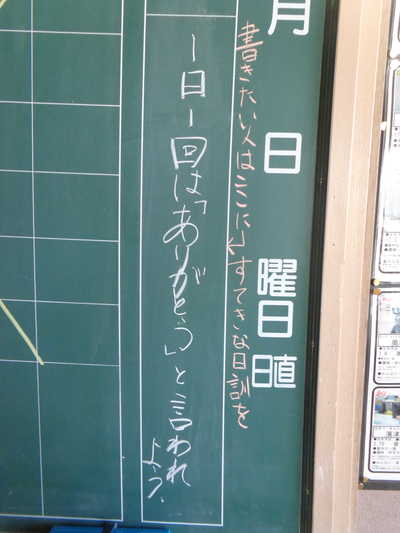 月 日 曜日 日直
書きたい人はここに↓すてきな日訓を
一日一回は「ありがとう」と言われ
よう。